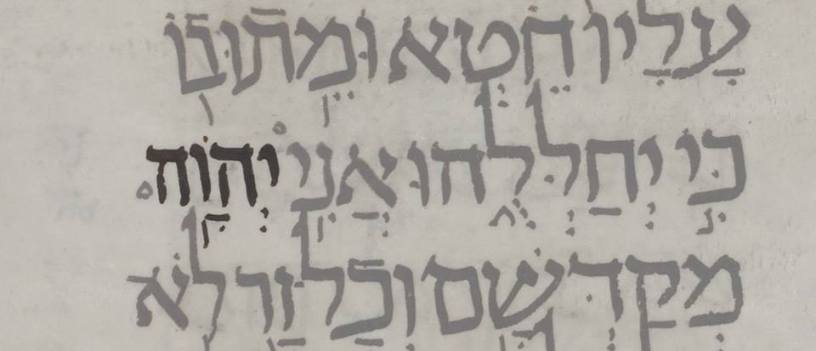 עָלָיו חֵטְא וּמֵתוּ בוֹ
כִּי יְחַלְּלֻהוּ אֲנִי יְהוָה
מְקַדְּשָׁם וְכָל זָר לֹא